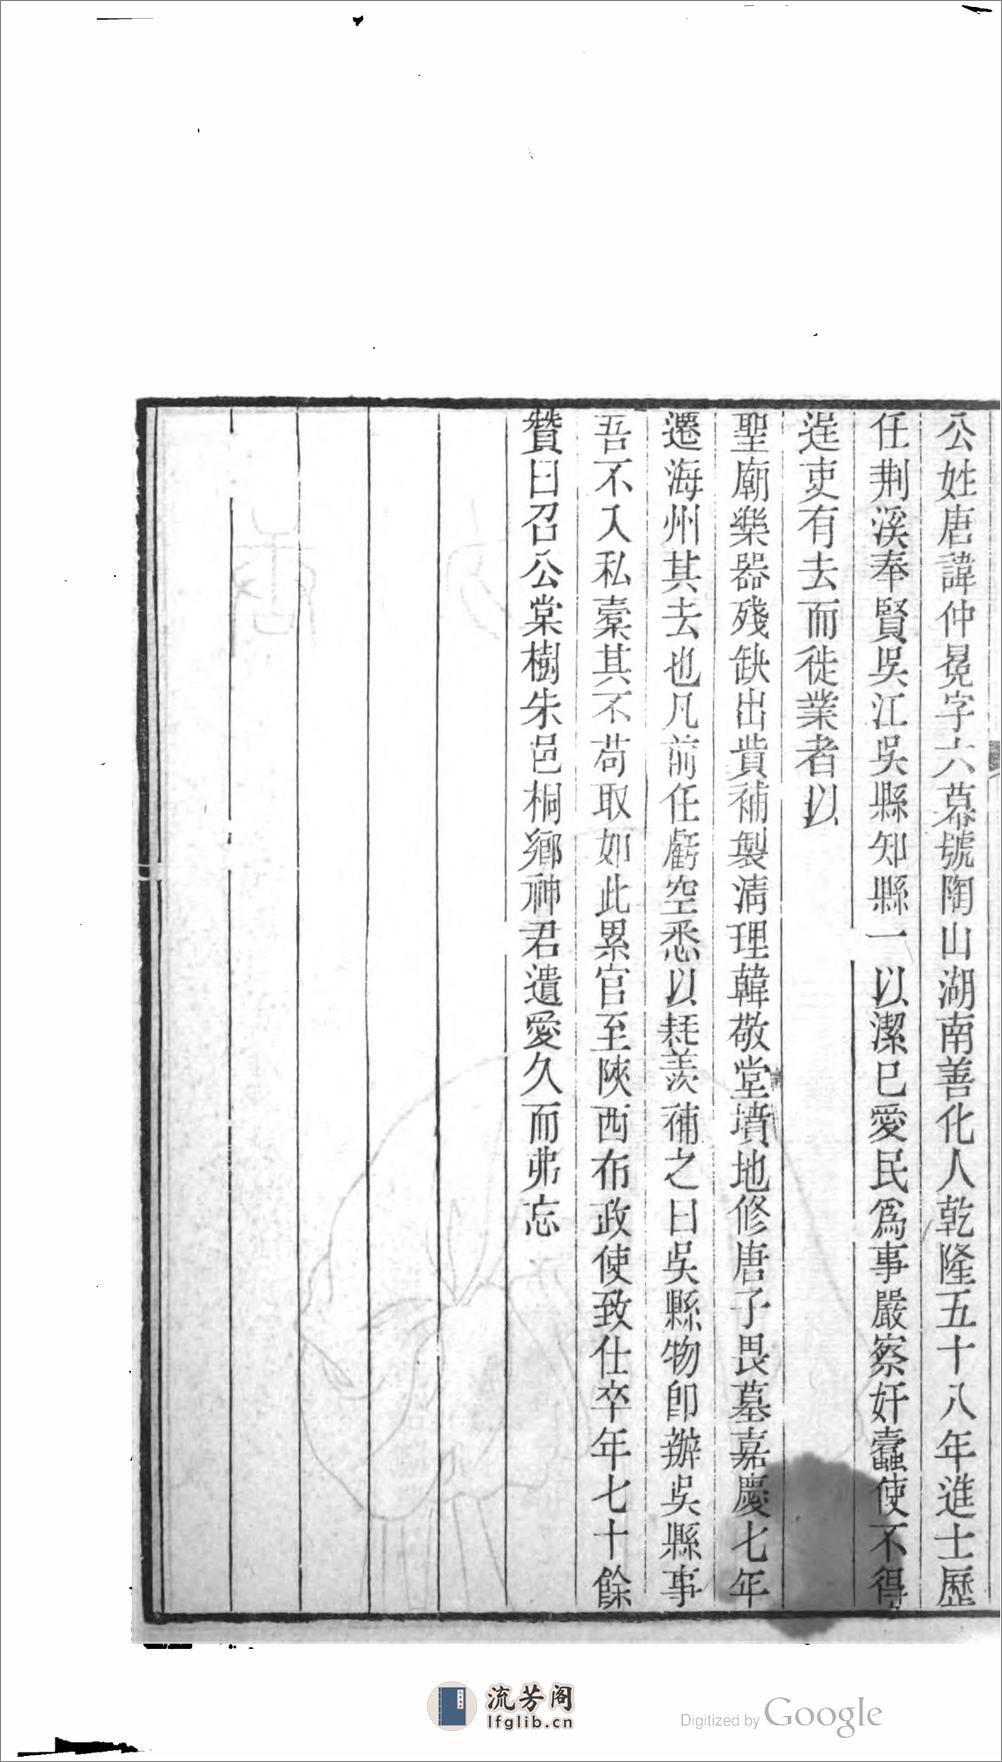 公姓唐諱仲冕字六幕號陶山湖南善化人乾隆五十八年進士歷
任荆溪奉賢吳江吳縣知縣一以潔已愛民爲事嚴察奸蠧使不得
逞吏有去而徙業者以
聖廟樂器殘缺出貲補製淸理韓敬堂墳地修唐子畏墓嘉慶七年
遷海州其去也凡前任虧空悉以耗羨補之曰吳縣物卽辦吳縣事
吾不入私槖其不苟取如此累官至陝西布政使致仕卒年七十餘
贊曰召公棠樹朱邑桐鄉神君遺愛久而弗忘
流芳阁
lfglib.cn
Digitized by Google